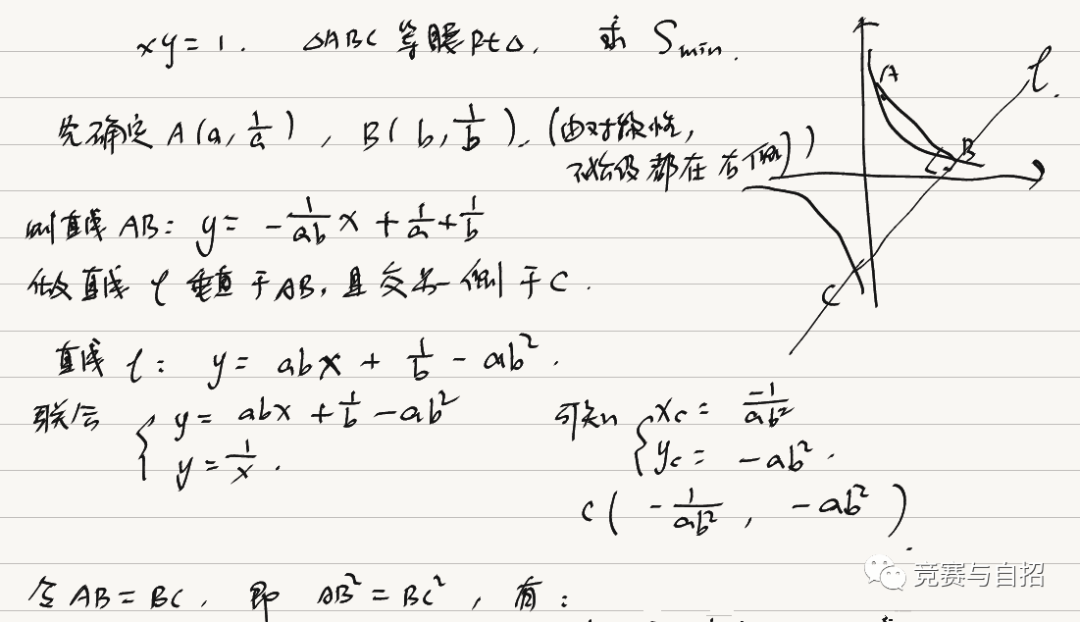 xy=1. △ABC 等腰Rt△. 求 Smin.
先确定 A(a, 1/a), B(b, 1/b). (由对称性,
不妨设都在右侧)
则直线 AB: y = -1/(ab) x + 1/a + 1/b
做直线 l 垂直于AB, 且交另一侧于C.
直线 l: y = abx + 1/b - ab².
联合 { y = abx + 1/b - ab²
y = 1/x.
可知 { xc = -1/(ab²)
yc = -ab².
C( -1/(ab²), -ab² ).
令 AB=BC, 即 AB²=BC², 有:
A
B
C
l.
竞赛与自招